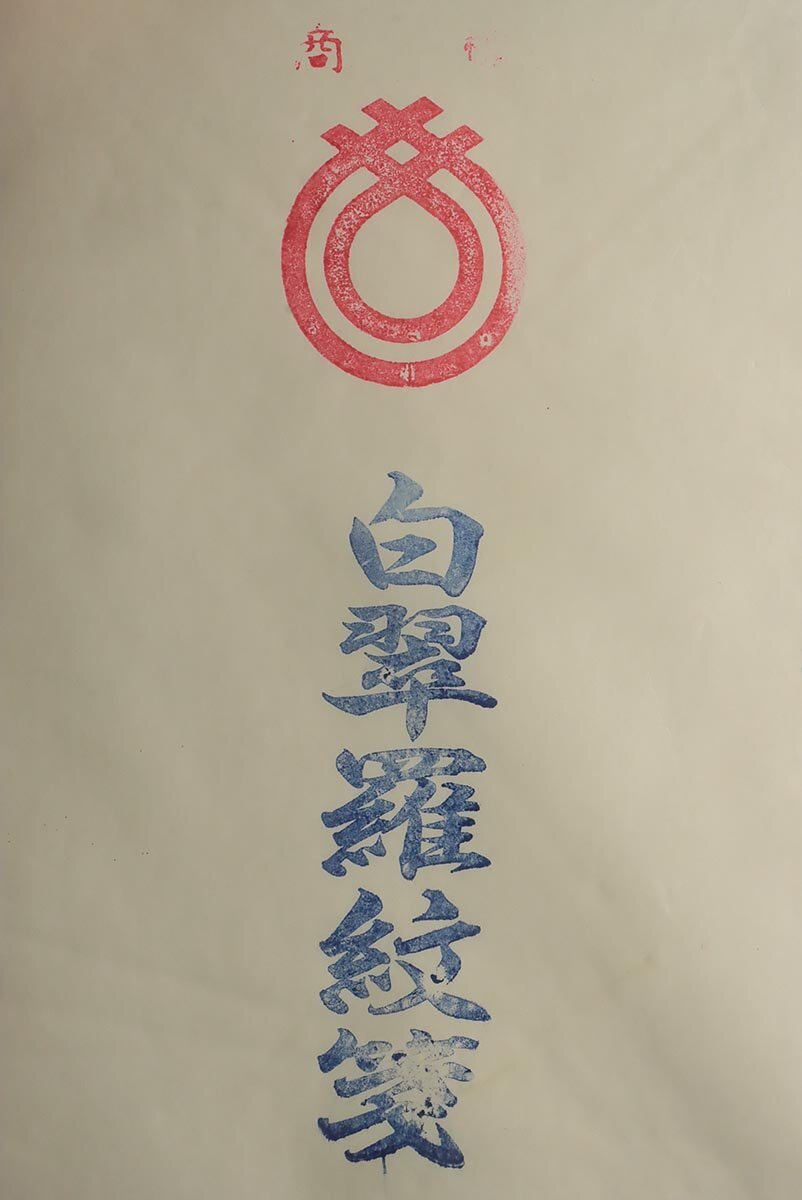 商
白翠羅紋箋